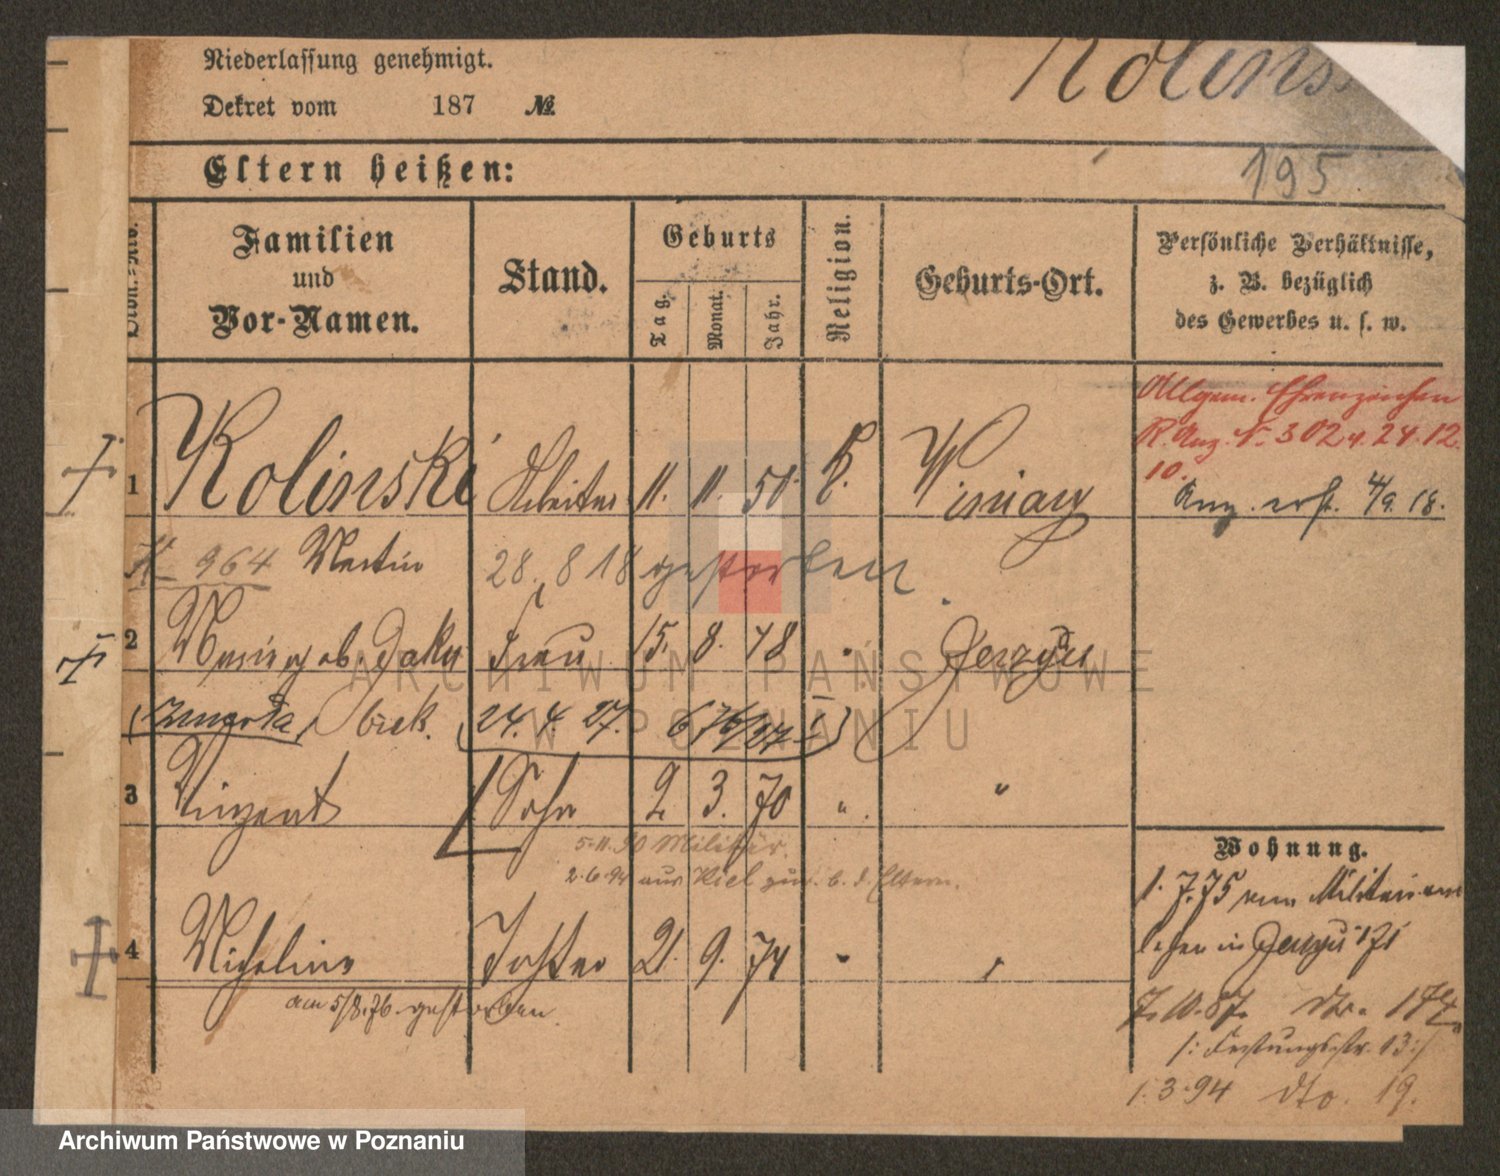 Niederlassung genehmigt.
Dekret vom 187 №
Kolins
195
Eltern heißen:
Familien
und
Vor-Namen.
Stand.
Geburts
Tag.
Monat.
Jahr.
Religion.
Geburts-Ort.
Persönliche Verhältnisse,
z. B. bezüglich
des Gewerbes u. s. w.
Allgem. Ehrenzeichen
R. Anz. N. 302 v. 24.12.
10.
1 Kolinski Arbeiter 11. 11. 50. k. Winiary
4/9. 18.
964 Martin 28. 8 18 gestorben
2 Frau 15. 8. 48 " Jerzyce
24. 4. 27.
3 Vinzent Sohn 2. 3. 70 " "
5.11.90 Militär.
2.6.94 aus Kiel zur. b. d. Eltern.
Wohnung.
1. 7. 75 vom Militair
in Jerzyce 171
4 Michalina Tochter 21. 9. 74 " "
am 5/8. 76. gestorben
7. 10. 87.
/: Festungsstr. 13 :/
1. 3. 94 dto. 19.
ARCHIWUM PAŃSTWOWE
W POZNANIU
Archiwum Państwowe w Poznaniu